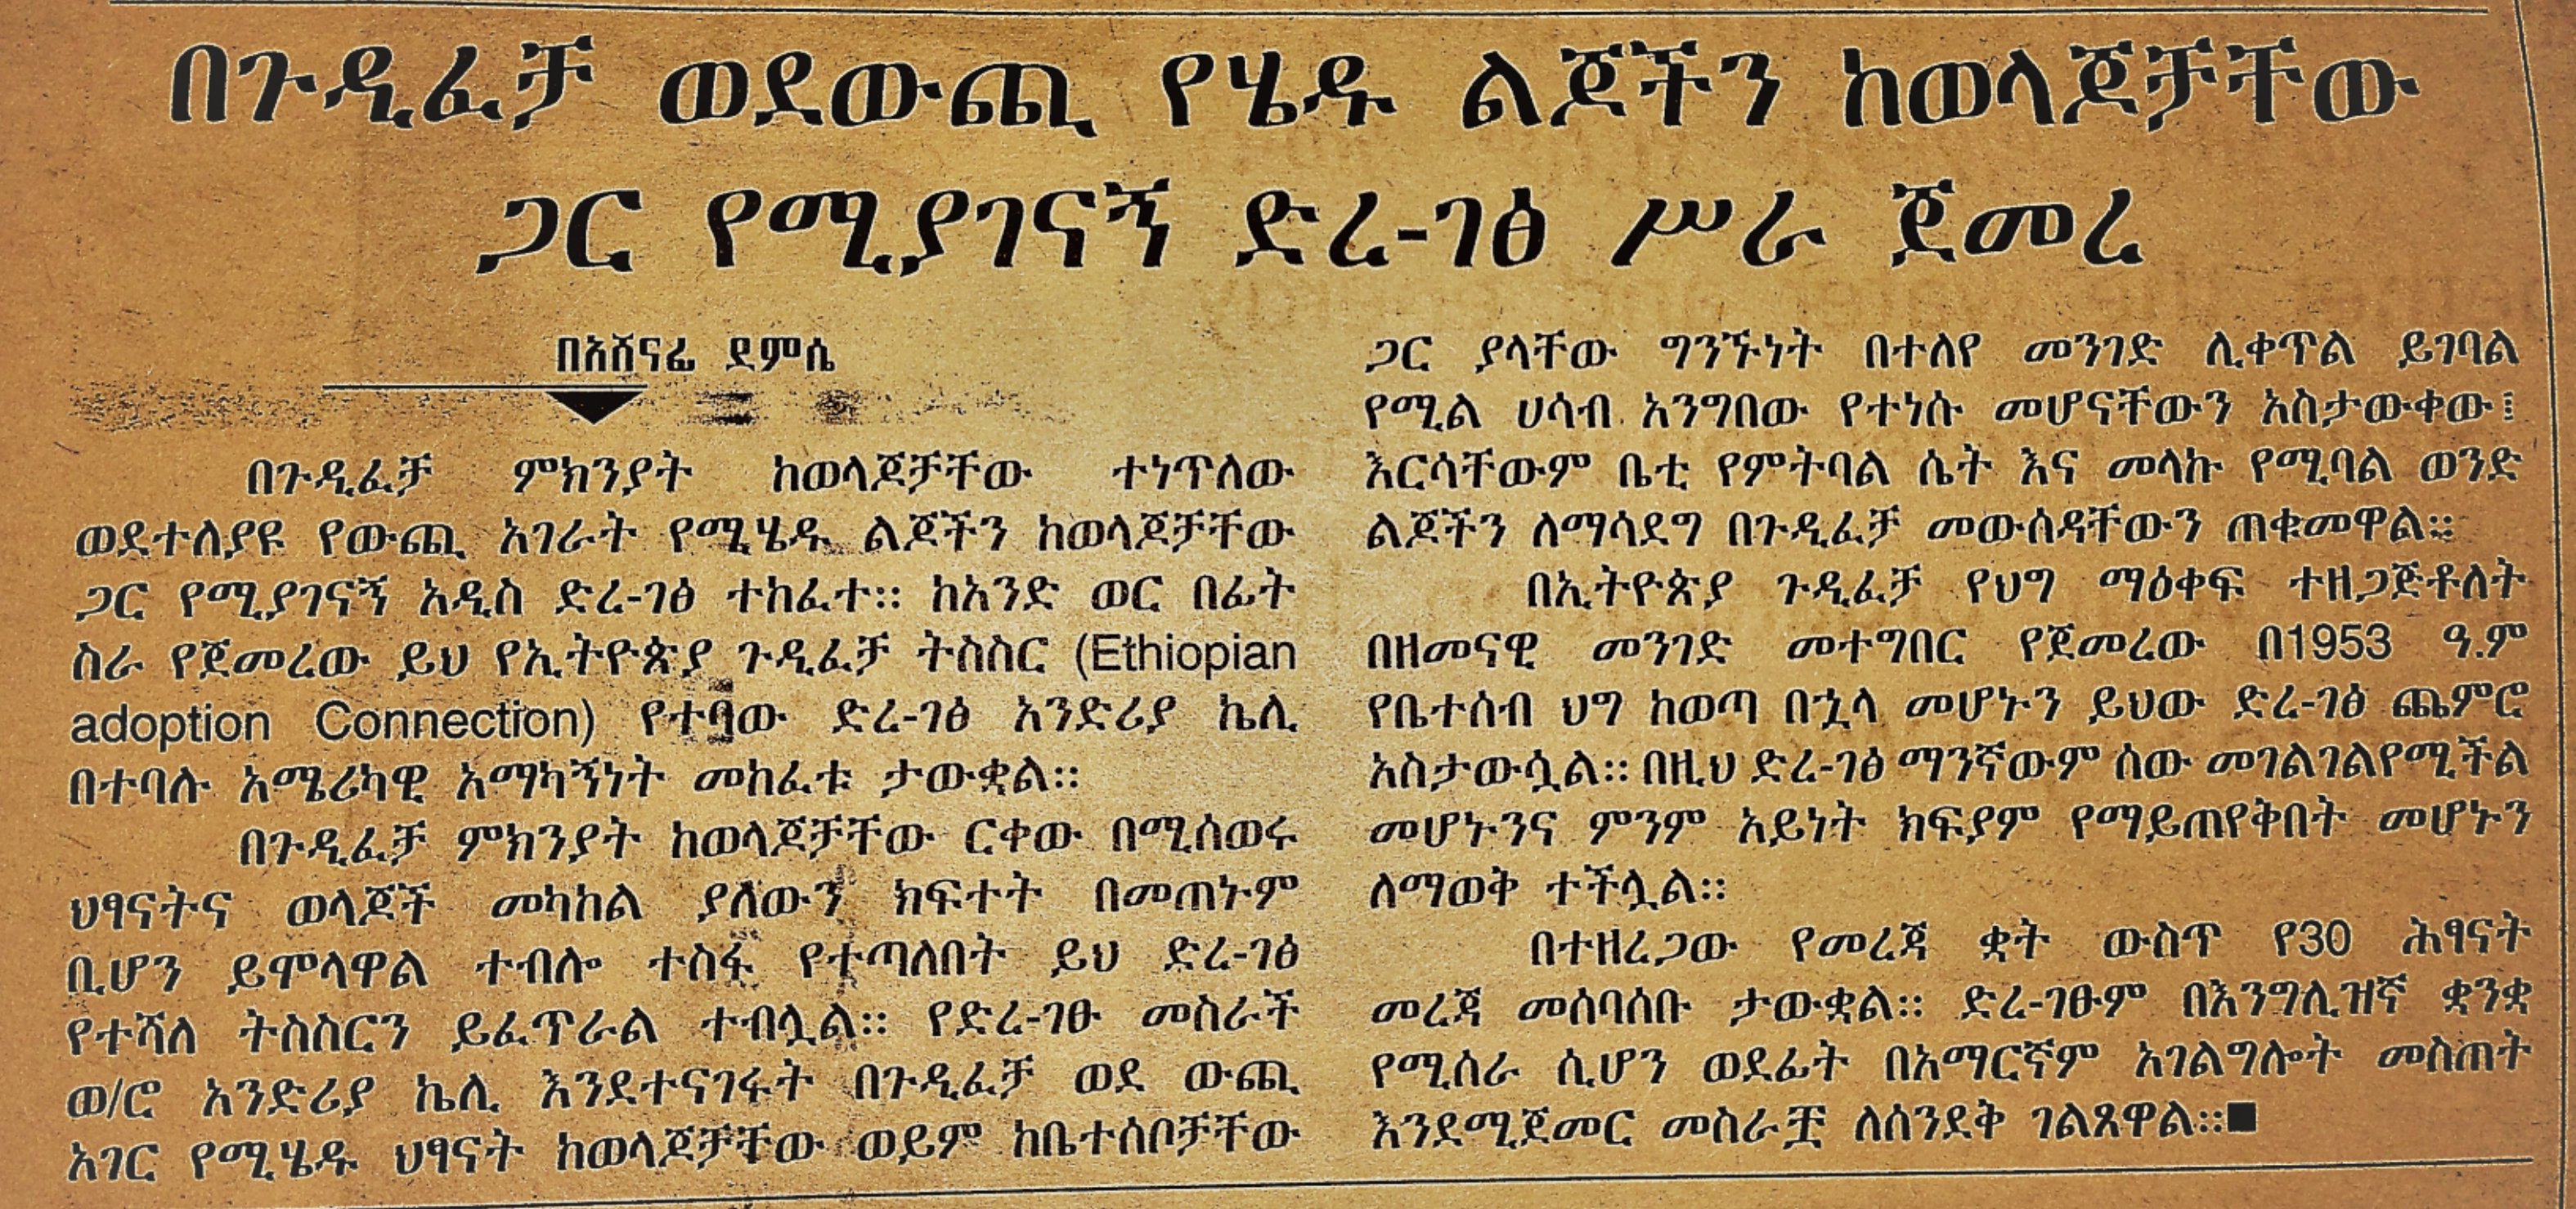 በጉዲፈቻ ወደውጪ የሄዱ ልጆችን ከወላጆቻቸው
ጋር የሚያገናኝ ድረ-ገፅ ሥራ ጀመረ
በአሸናፊ ደምሴ
በጉዲፈቻ ምክንያት ከወላጆቻቸው ተነጥለው
ወደተለያዩ የውጪ አገራት የሚሄዱ ልጆችን ከወላጆቻቸው
ጋር የሚያገናኝ አዲስ ድረ-ገፅ ተከፈተ። ከአንድ ወር በፊት
ስራ የጀመረው ይህ የኢትዮጵያ ጉዲፈቻ ትስስር (Ethiopian
adoption Connection) የተባው ድረ-ገፅ አንድሪያ ኬሊ
በተባሉ አሜሪካዊ አማካኝነት መከፈቱ ታውቋል።
በጉዲፈቻ ምክንያት ከወላጆቻቸው ርቀው በሚሰወሩ
ህፃናትና ወላጆች መካከል ያለውን ክፍተት በመጠኑም
ቢሆን ይሞላዋል ተብሎ ተስፋ የተጣለበት ይህ ድረ-ገፅ
የተሻለ ትስስርን ይፈጥራል ተብሏል። የድረ-ገፁ መስራች
ወ/ሮ አንድሪያ ኬሊ እንደተናገሩት በጉዲፈቻ ወደ ውጪ
አገር የሚሄዱ ህፃናት ከወላጆቻቸው ወይም ከቤተሰቦቻቸው
ጋር ያላቸው ግንኙነት በተለየ መንገድ ሊቀጥል ይገባል
የሚል ሀሳብ አንግበው የተነሱ መሆናቸውን አስታውቀው፤
እርሳቸውም ቤቲ የምትባል ሴት እና መላኩ የሚባል ወንድ
ልጆችን ለማሳደግ በጉዲፈቻ መውሰዳቸውን ጠቁመዋል።
በኢትዮጵያ ጉዲፈቻ የህግ ማዕቀፍ ተዘጋጅቶለት
በዘመናዊ መንገድ መተግበር የጀመረው በ1953 ዓ.ም
የቤተሰብ ህግ ከወጣ በኋላ መሆኑን ይህው ድረ-ገፅ ጨምሮ
አስታውሷል። በዚህ ድረ-ገፅ ማንኛውም ሰው መገልገልየሚችል
መሆኑንና ምንም አይነት ክፍያም የማይጠየቅበት መሆኑን
ለማወቅ ተችሏል።
በተዘረጋው የመረጃ ቋት ውስጥ የ30 ሕፃናት
መረጃ መሰባሰቡ ታውቋል። ድረ-ገፁም በእንግሊዝኛ ቋንቋ
የሚሰራ ሲሆን ወደፊት በአማርኛም አገልግሎት መስጠት
እንደሚጀመር መስራቿ ለሰንደቅ ገልጸዋል።